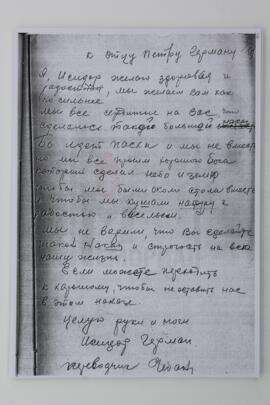 к отцу Петру Герману
Я, Исидор желаю здоровья и
радости, мы желаем вам как
по сильнее
мы все сердитые на вас что
сделалось такой большой
идет пасха и мы не вместе
но мы все просим хорошого бога
который сделал небо и землю
чтобы мы были около стола вместе
и чтобы мы кушали с
радостью и весельем.
мы не верим, что Вы сделаете
такой и на всю
нашу жизнь.
Если можете переходить
к хорошому, чтобы не оставить нас
в этом
Целую руки и ноги
Исидор Герман
переводчик